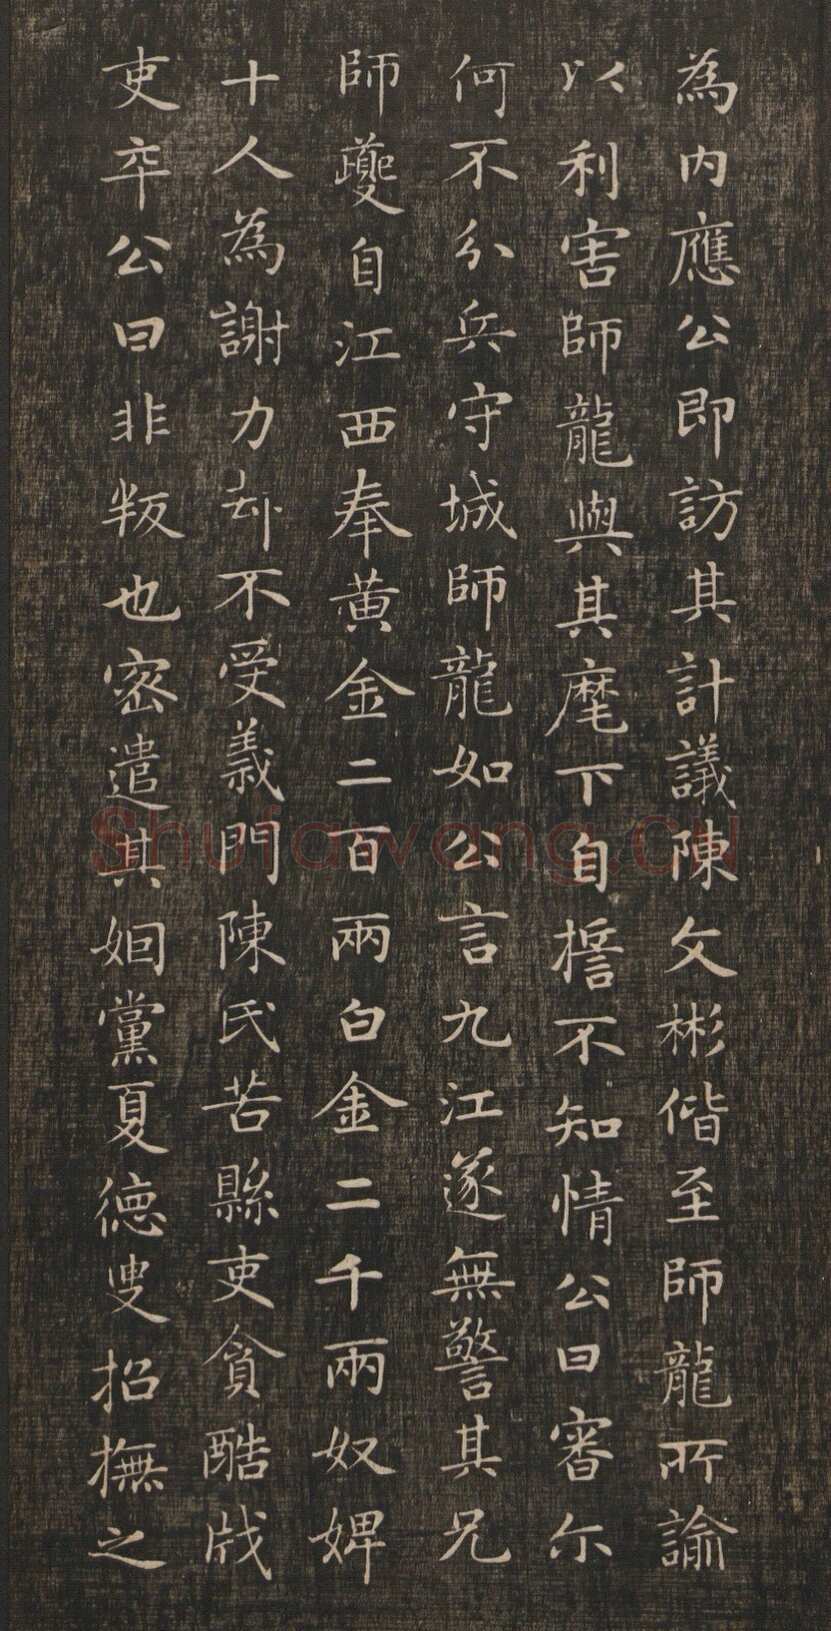 為内應公即訪其計議陳文彬偕至師龍所諭
以利害師龍與其麾下自擔不知情公曰審尒
何不分兵守城師龍如公言九江遂無警其兄
師夔自江西奉黄金二百兩白金二千兩奴婢
十人為謝力却不受義門陳氏苦縣吏貪酷戕
吏卒公曰非叛也宻遣其姻黨夏德叟招撫之
shufawang.cn